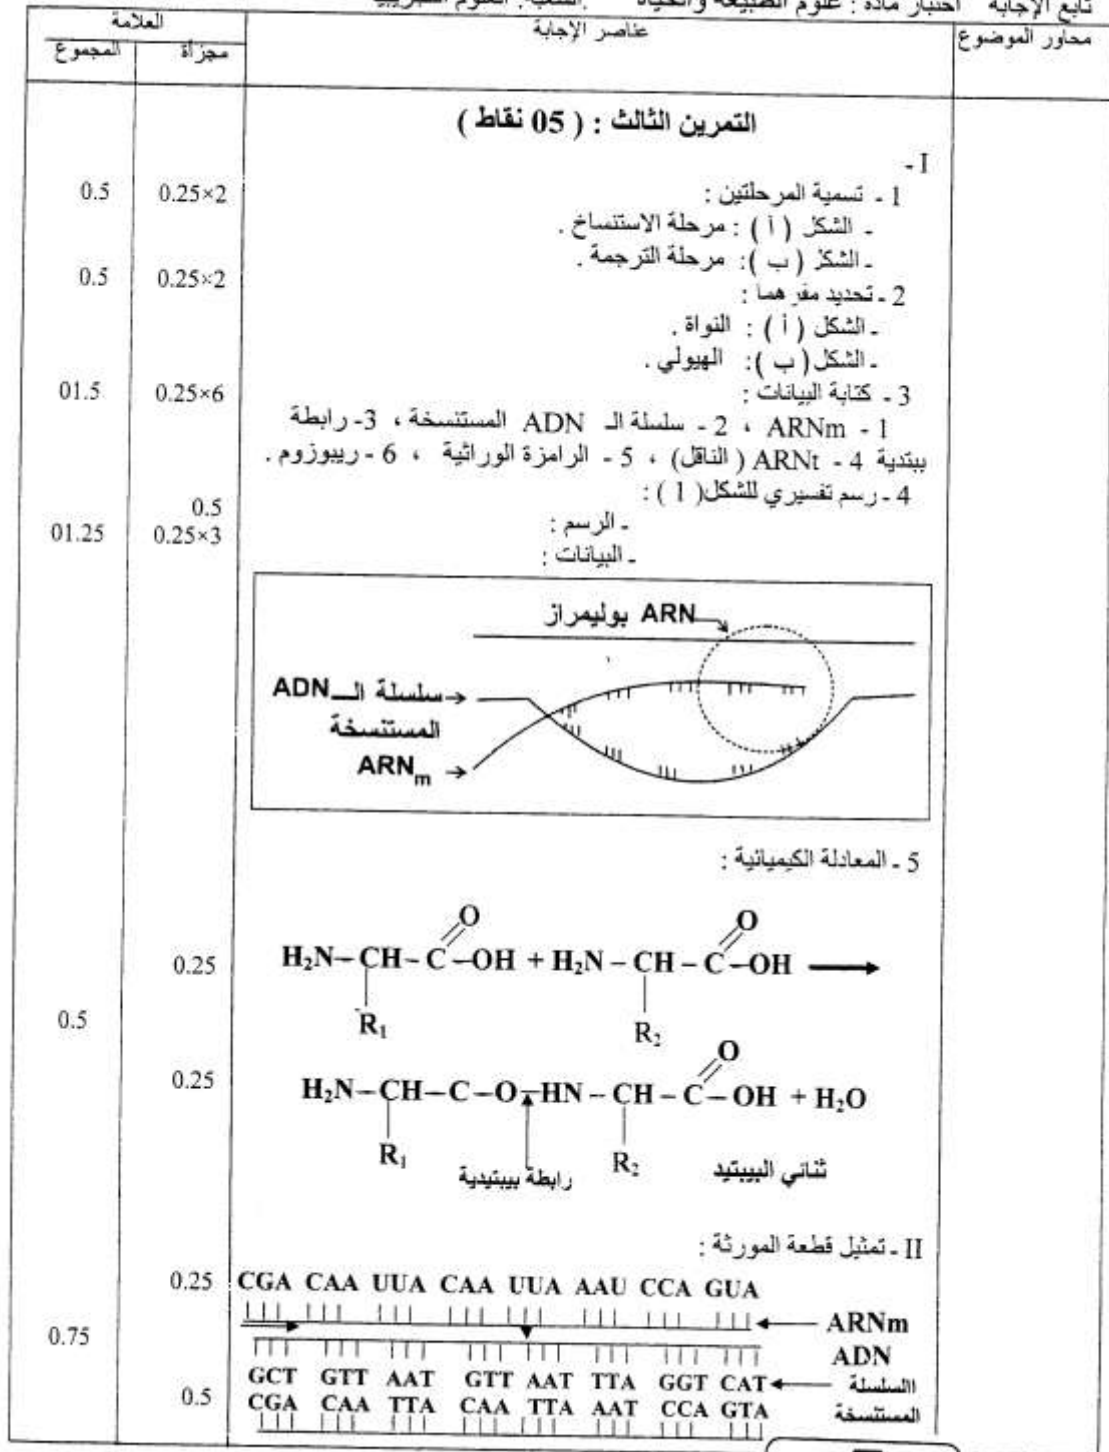 تابع الإجابة اختبار مادة : علوم الطبيعة والحياة الشعبة: العلوم التجريبية
محاور الموضوع عناصر الإجابة العلامة
مجزأة المجموع
التمرين الثالث : ( 05 نقاط )
I -
1 - تسمية المرحلتين : 0.25×2 0.5
- الشكل ( أ ) : مرحلة الاستنساخ .
- الشكل ( ب ): مرحلة الترجمة .
2 - تحديد مقرهما : 0.25×2 0.5
- الشكل ( أ ) : النواة .
- الشكل ( ب ): الهيولي .
3 - كتابة البيانات : 0.25×6 01.5
1 - ARNm ، 2 - سلسلة الـ ADN المستنسخة ، 3- رابطة
ببتدية 4 - ARNt ( الناقل) ، 5 - الرامزة الوراثية ، 6 - ريبوزوم .
4 - رسم تفسيري للشكل( 1 ) :
- الرسم : 0.5
- البيانات : 0.25×3 01.25
ARN بوليمراز
سلسلة الـــ ADN
المستنسخة
ARNm
5 - المعادلة الكيميائية :
O O
H₂N–CH–C–OH + H₂N–CH–C–OH ⟶ 0.25
R₁ R₂ 0.5
O
H₂N–CH–C–O–HN–CH–C–OH + H₂O 0.25
R₁ R₂
رابطة بيبتيدية ثنائي البيبتيد
II - تمثيل قطعة المورثة :
CGA CAA UUA CAA UUA AAU CCA GUA 0.25
ARNm
ADN 0.75
GCT GTT AAT GTT AAT TTA GGT CAT السلسلة
CGA CAA TTA CAA TTA AAT CCA GTA المستنسخة 0.5